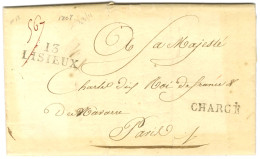 567
13
LISIEUX
A Sa Majesté
Charles dix Roi de france &
de Navarre
CHARGÉ
Paris